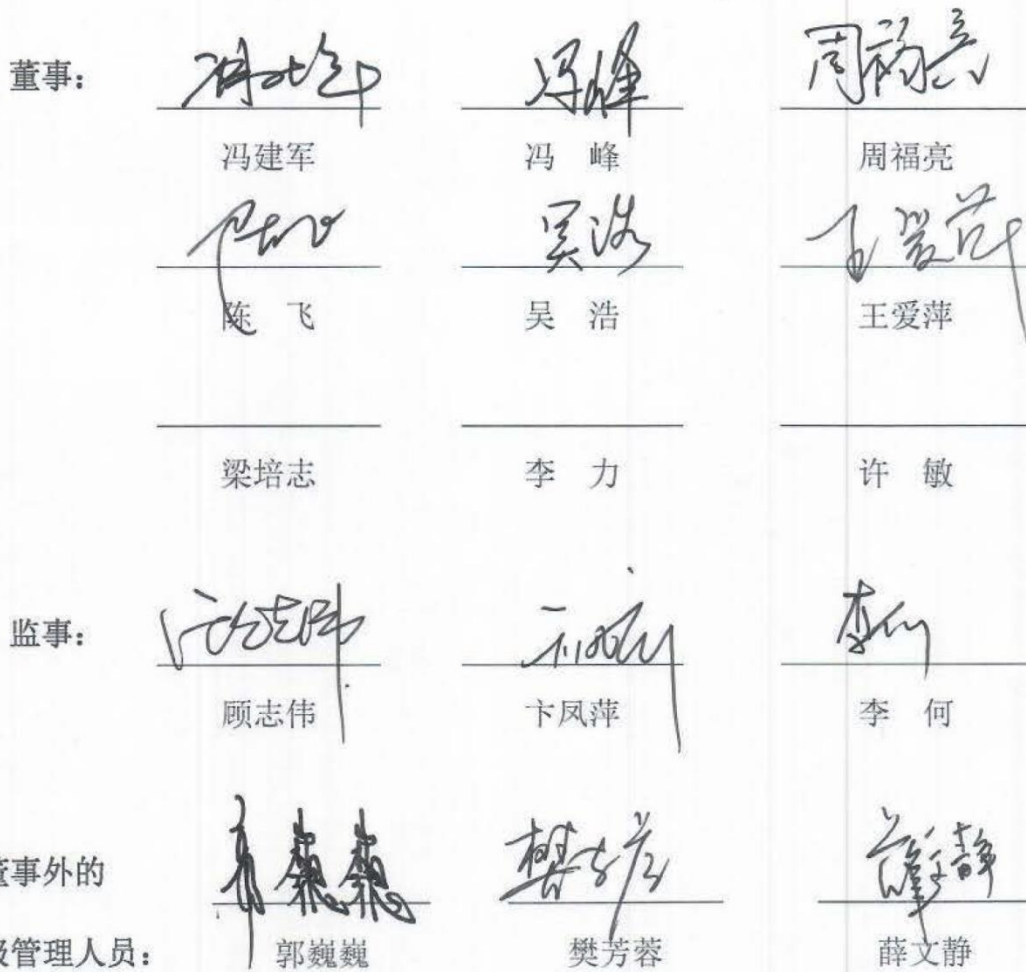 董事：
冯建军 冯 峰 周福亮
陈 飞 吴 浩 王爱萍
梁培志 李 力 许 敏
监事：
顾志伟 卞凤萍 李 何
董事外的
级管理人员： 郭巍巍 樊芳蓉 薛文静